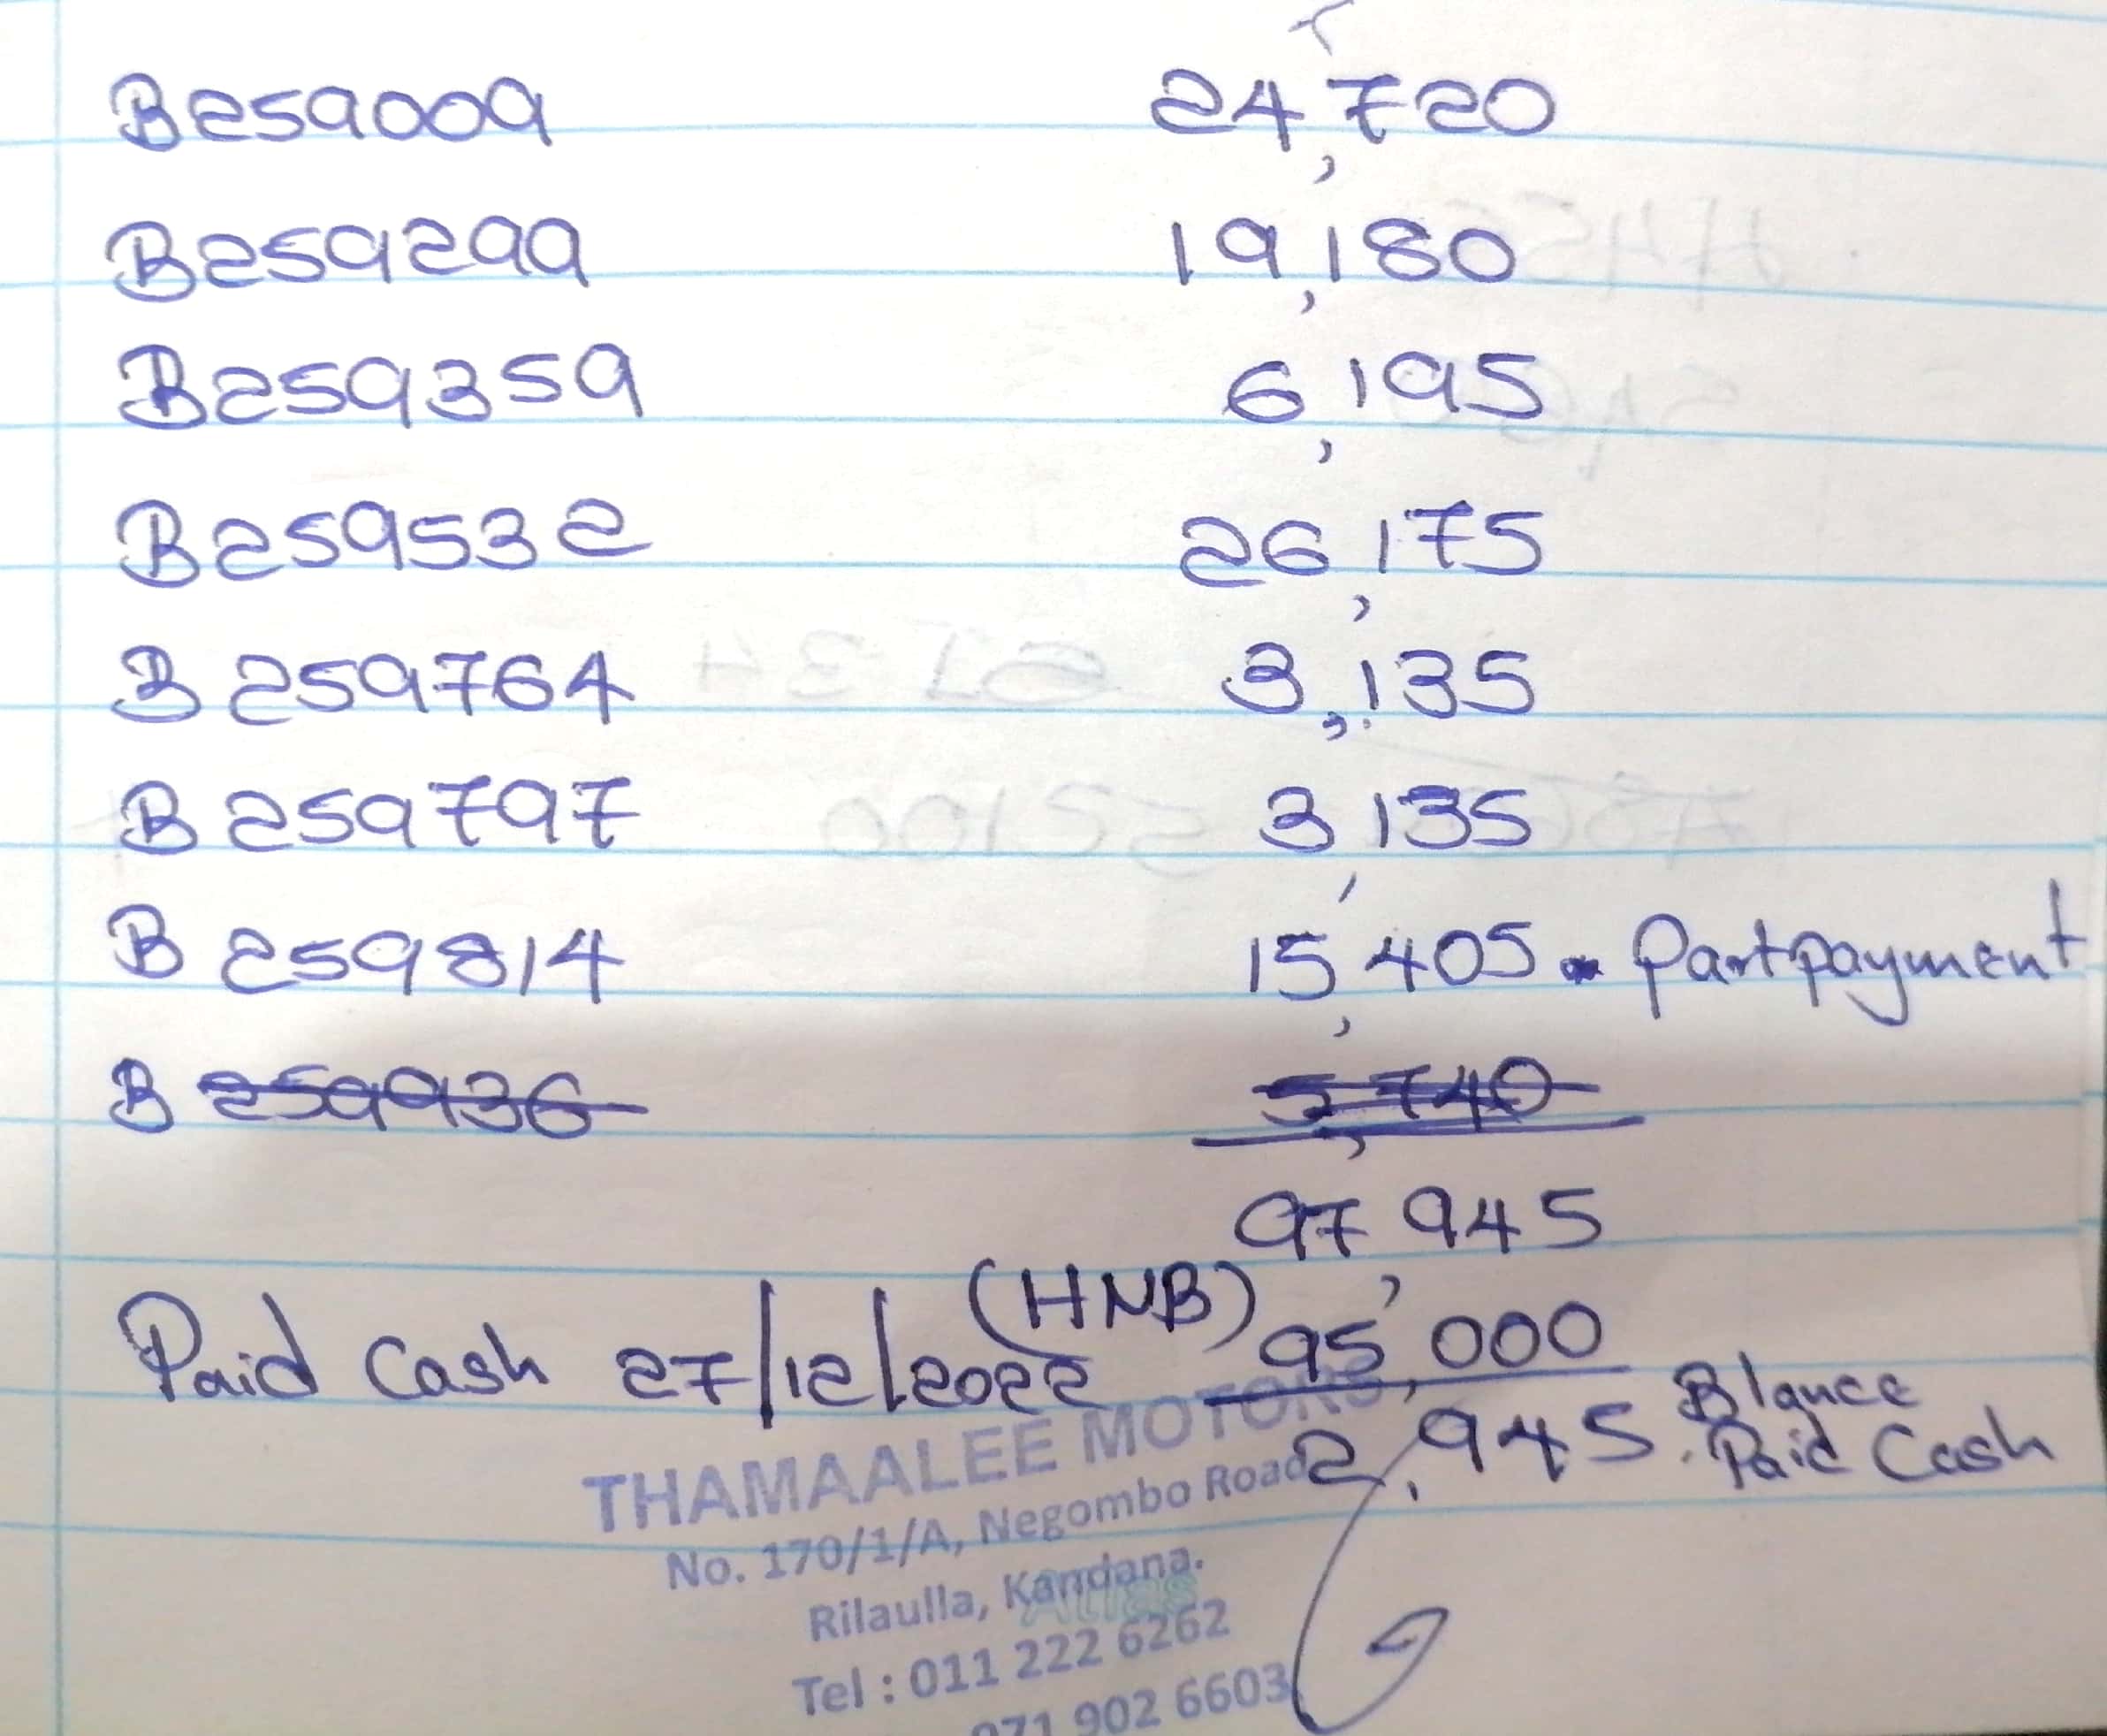 B259009 24,720
B259299 19,180
B259359 6,195
B259532 26,175
B 259764 3,135
B 259797 3,135
B 259814 15,405 - Partpayment
B 259936 5,740
97,945
Paid Cash 27/12/2022 (HNB) 95,000
2,945. Blance
Paid Cash
THAMAALEE MOTORS
No. 170/1/A, Negombo Road
Rilaulla, Kandana.
Atlas
Tel : 011 222 6262
071 902 6603